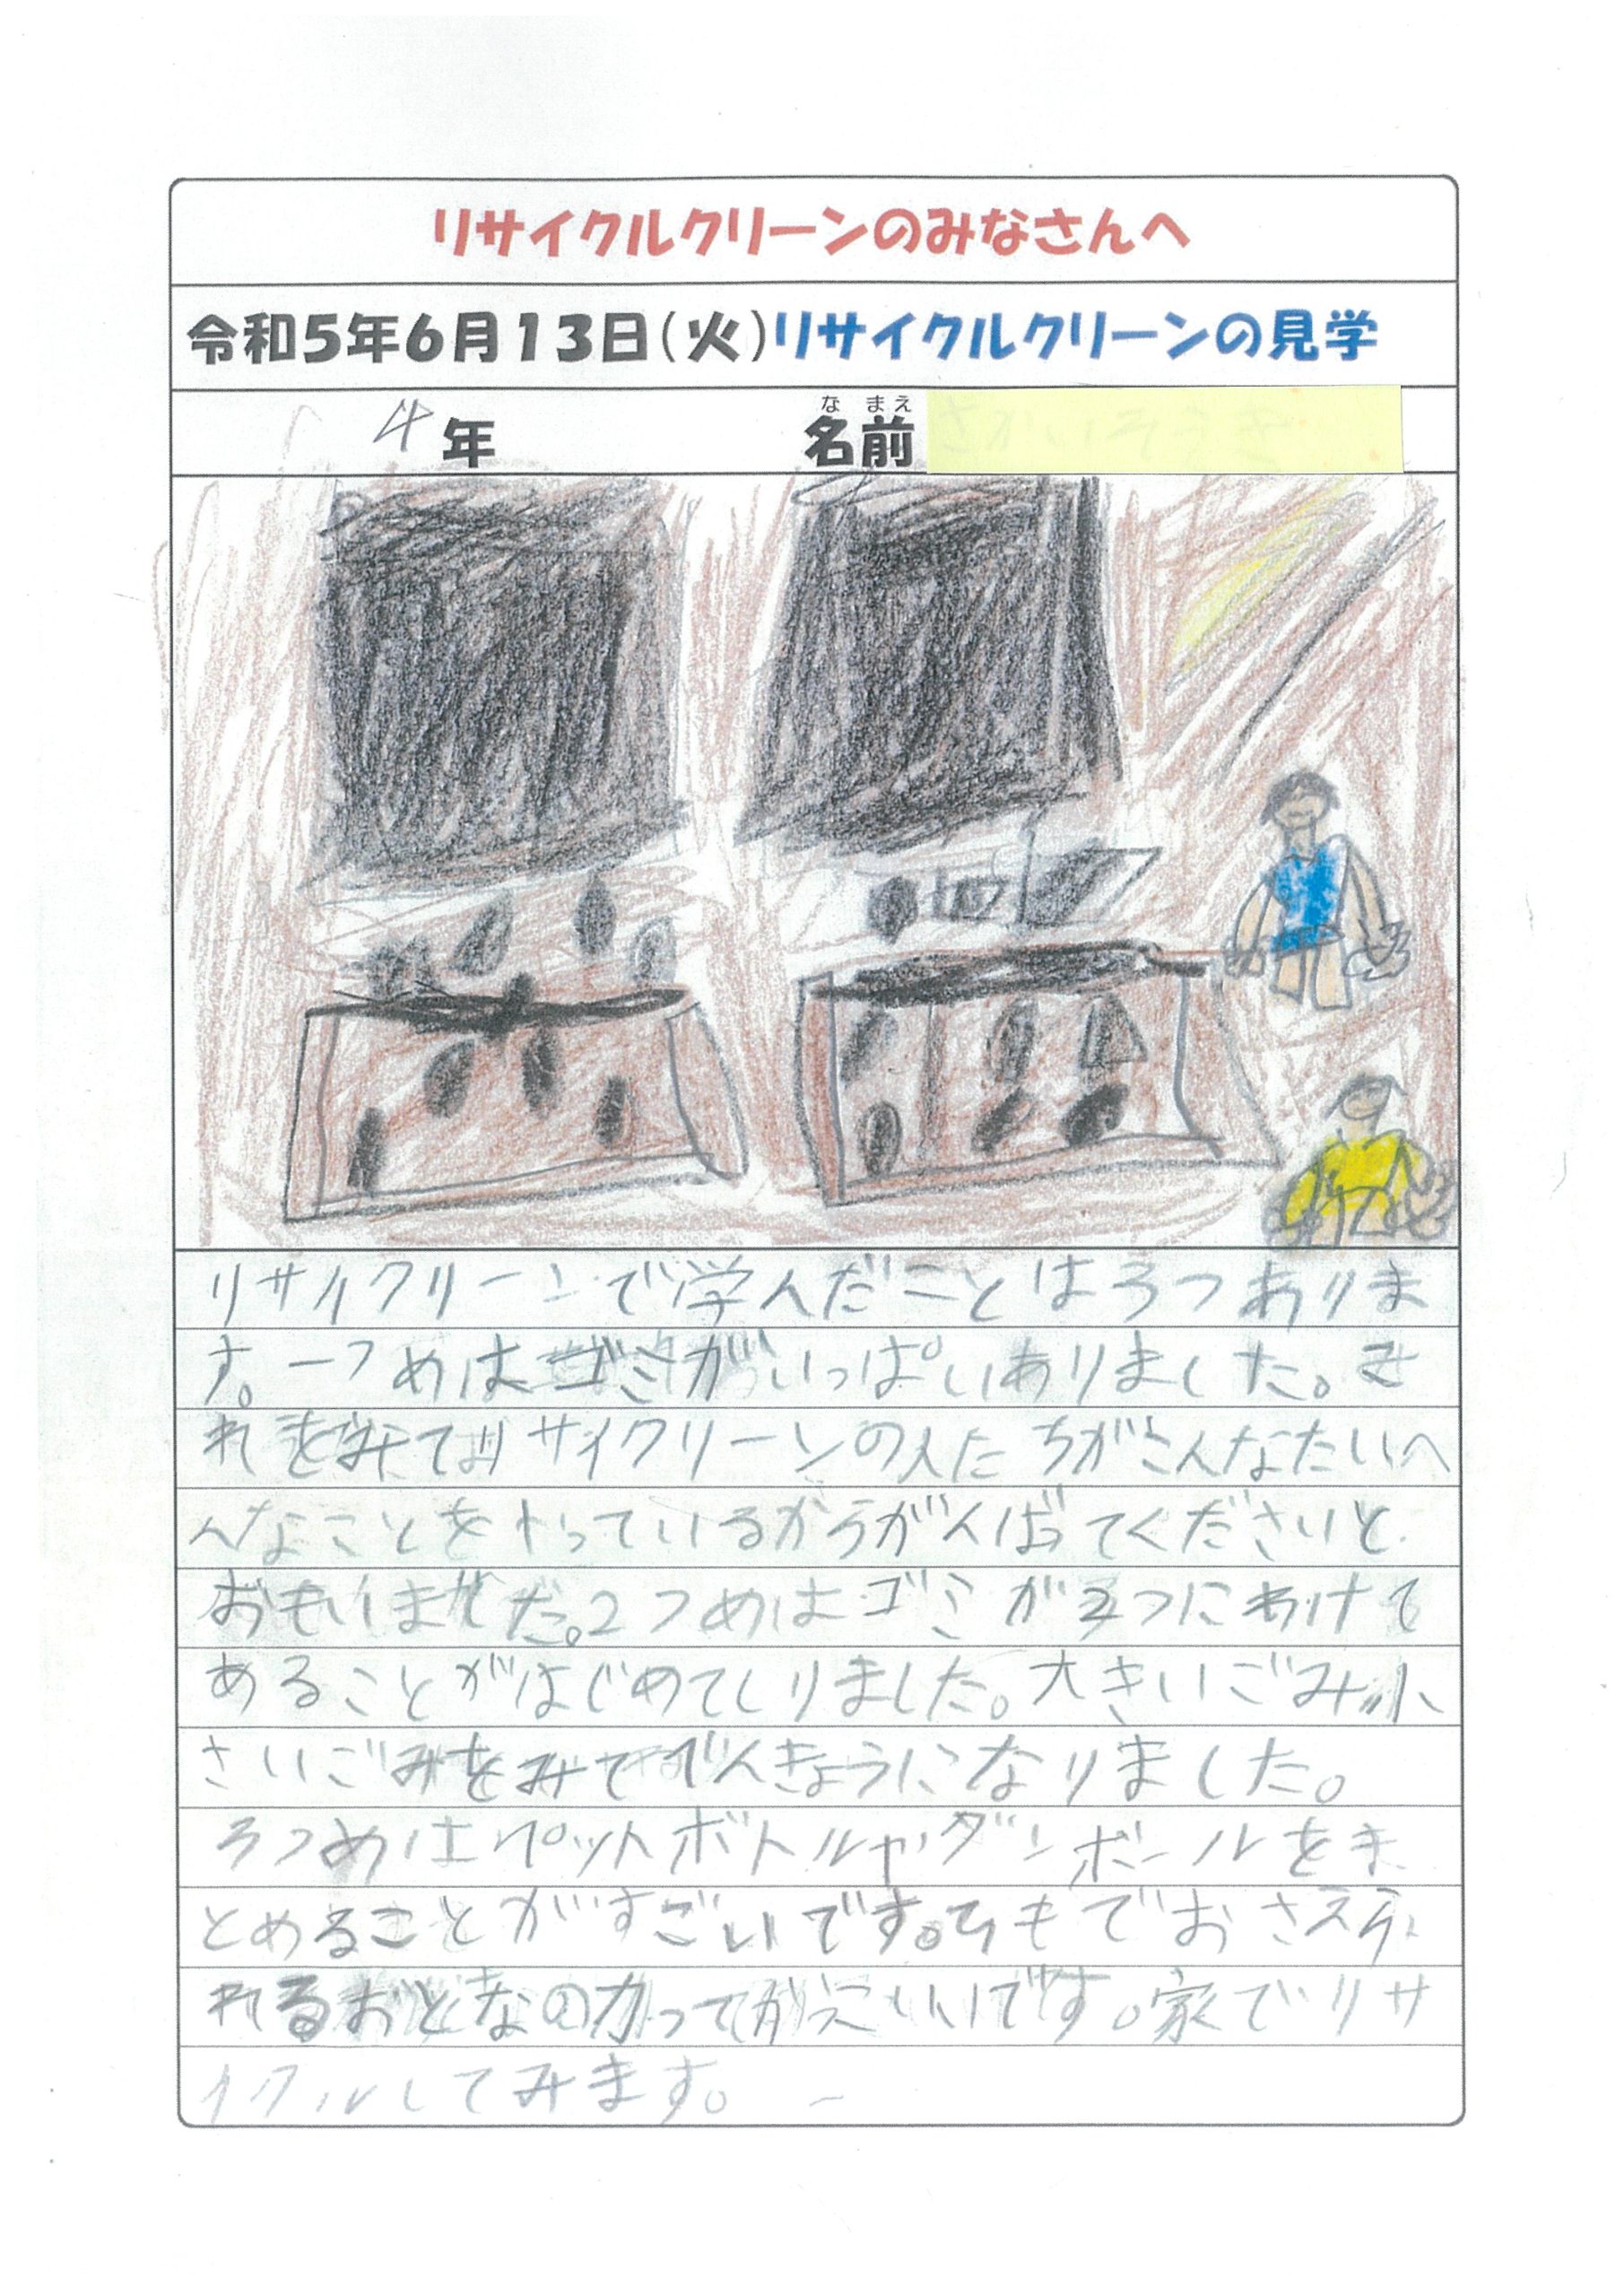 リサイクルクリーンのみなさんへ
令和5年6月13日(火)リサイクルクリーンの見学
4年 名前
なまえ
リサイクリーンで学んだことは3つありま
す。一つめはゴミがいっぱいありました。そ
れをみてリサイクリーンの人たちがこんなたいへ
んなことをやっているからがんばってくださいと
おもいました。2つめはゴミが3つにわけて
あることがはじめてしりました。大きいごみ小
さいごみをみてべんきょうになりました。
3つめはペットボトルやダンボールをま
とめることがすごいです。ひもでおさえら
れるおとなの力ってかっこいいです。家でリサ
イクルしてみます。